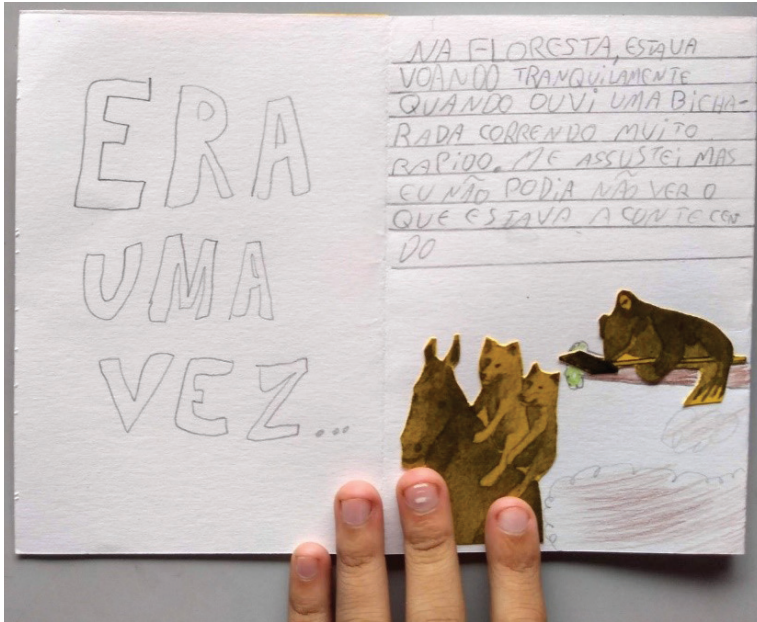 ERA
UMA
VEZ...
NA FLORESTA, ESTAVA
VOANDO TRANQUILAMENTE
QUANDO OUVI UMA BICHA-
RADA CORRENDO MUITO
RAPIDO. ME ASSUSTEI MAS
EU NÃO PODIA NÃO VER O
QUE ESTAVA ACONTECEN
DO